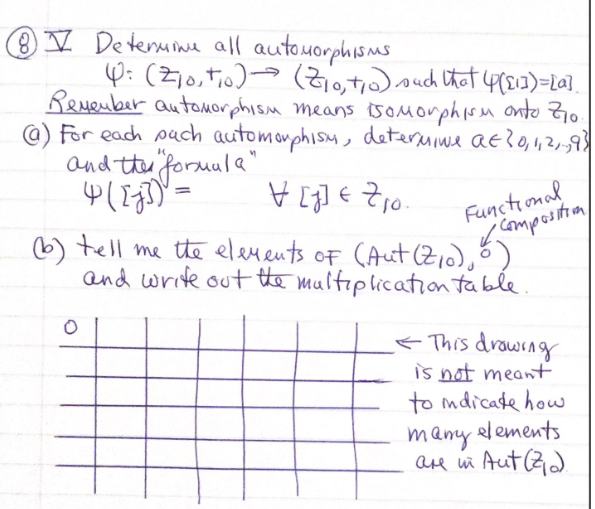 ⑧ V Determine all automorphisms
φ: (Z10, +10) → (Z10, +10) such that φ([1])=[a].
Remember automorphism means isomorphism onto Z10.
(a) For each such automorphism, determine a∈{0,1,2,..,9}
and the "formula"
φ([j]) = ∀ [j] ∈ Z10.
Functional
composition
(b) tell me the elements of (Aut(Z10), o)
and write out the multiplication table.
o
← This drawing
is not meant
to indicate how
many elements
are in Aut(Z10)